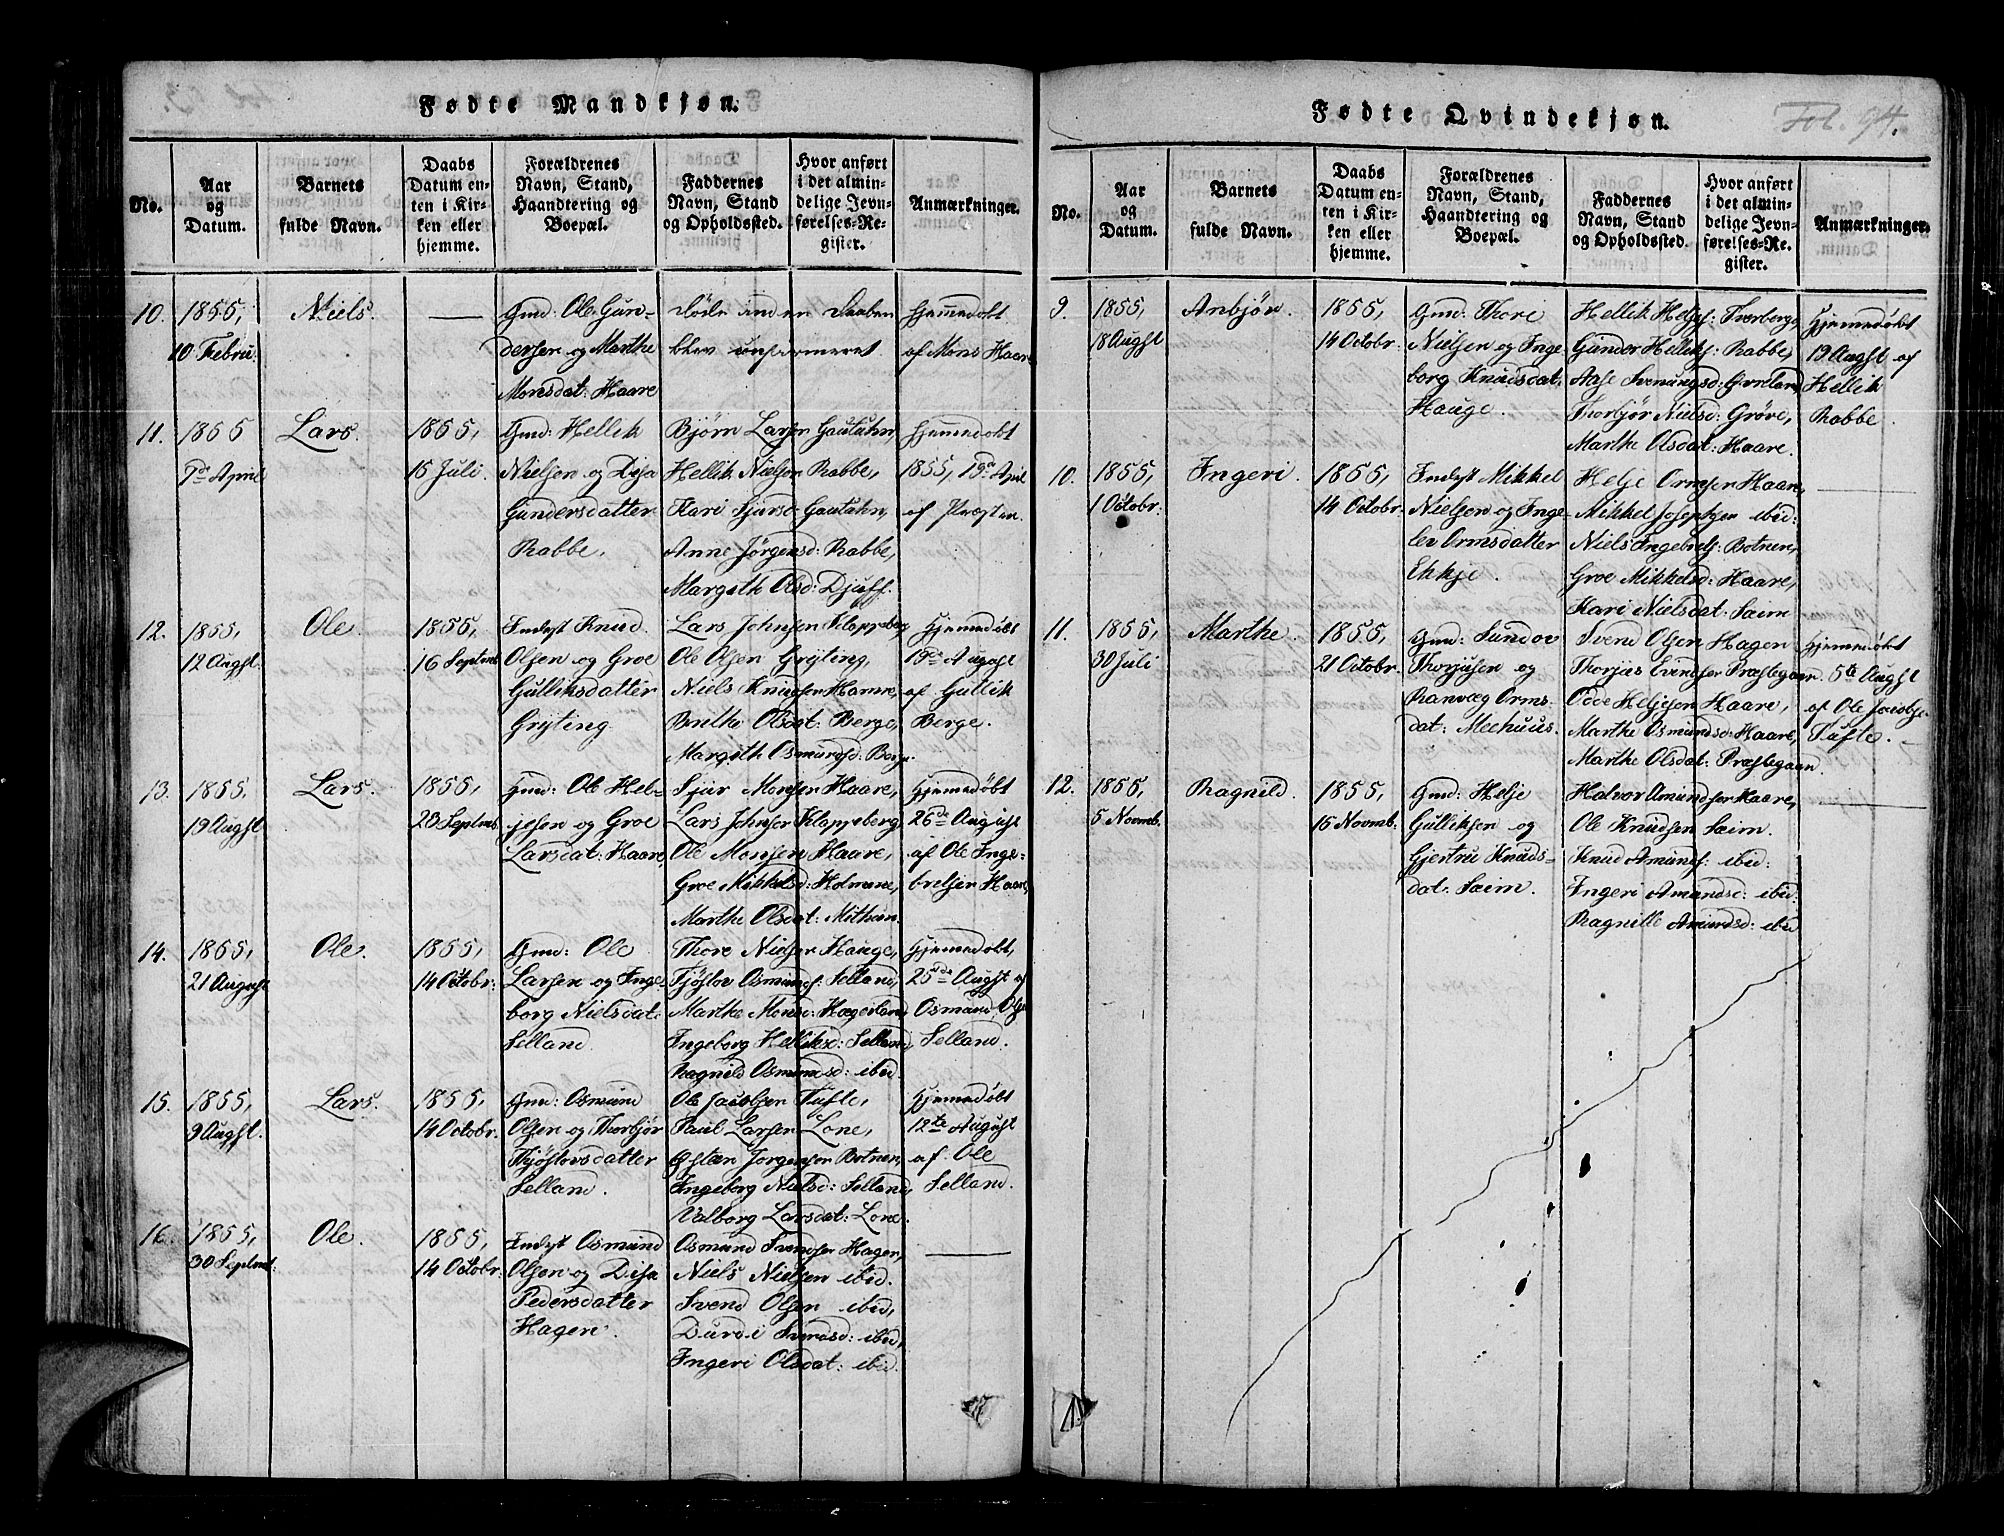 Fødte Mandkjøn.
No.
Aar
og
Datum.
Barnets
fulde Navn.
Daabs
Datum en-
ten i Kir-
ken eller
hjemme.
Forældrenes
Navn, Stand,
Haandtering og
Boepæl.
Faddernes
Navn, Stand
og Opholdssted.
Hvor anført
i det almin-
delige Jevn-
førelses-Re-
gister.
Anmærkninger.
10.
1855,
10 Febru:
Niels.
Gmd: Ole Gun-
dersen og Marthe
Monsdat: Haare
Døde inden Daaben
blev confirmeret
Hjemmedøbt
af Mons Haare
11.
1855
9de April
Lars.
1855,
15 Juli.
Gmd: Hellik
Nielsen og Disa
Gundersdatter
Rabbe.
Bjørn Larsen Gautuhn,
Hellik Nielsen Rabbe,
Kari Sjursd Gautuhn,
Anne Jørgensd: Rabbe,
Margith Olsd: Djuff.
Hjemmedøbt
1855, 19de April
af Præsten.
12.
1855,
12 Augst.
Ole.
1855,
16 Septmb
Indyst Knud
Olsen og Groe
Gulliksdatter
Gryting.
Lars Johnsen Kloppeberg
Ole Olsen Gryting,
Niels Knudsen Haare,
Brithe Olsdat: Berge,
Margith Osmundsd: Berge.
Hjemedøbt
19de August
af Gullik
Berge.
13.
1855,
19 Augst
Lars.
1855,
23 Septmb.
Gmd: Ole Hel-
jesen og Groe
Larsdat: Haare
Sjur Monsen Haare,
Lars Johnsen Kloppeberg
Ole Monsen Haare,
Groe Mikkelsd: Holmene,
Marthe Olsdat: Mithun.
Hjemedøbt
26de August
af Ole Inge-
bretsen Haare,
14.
1855,
21 August
Ole.
1855,
14 Octobr:
Gmd: Ole
Larsen og Inge-
borg Nielsdat:
Selland.
Thore Nielsen Hauge,
Tjøstov Osmunds: Selland,
Marthe Monsd: Hægeland,
Ingeborg Helliksd: Selland,
Ragnild Osmundsd: ibid.
Hjemedøbt,
25de Augst af
Osmund Olse
Selland.
15.
1855,
9 Augst.
Lars.
1855,
14 Octobr.
Gmd: Osmund
Olsen og Thorbjør
Thjøstovsdatter
Selland.
Ole Jacobsen Tufte,
Paul Larsen Lone,
Østen Jorgensen Botnen,
Ingeborg Nielsd: Selland,
Valborg Larsdat: Lone.
Hjemedøbt
12te August
af Ole
Selland.
16.
1855,
30 Septmr:
Ole.
1855,
14 Octobr:
Indyst Osmund
Olsen og Disa
Pedersdatter
Hagen.
Osmund Svendsen Hagen,
Niels Nielsen ibid.
Svend Olsen ibid,
Durdei Svendsd: ibid,
Ingeri Olsdat: ibid.
Fødte Qvindekjøn.
Fol. 94.
No.
Aar
og
Datum.
Barnets
fulde Navn.
Daabs
Datum en-
ten i Kir-
ken eller
hjemme.
Forældrenes
Navn, Stand,
Haandtering og
Boepæl.
Faddernes
Navn, Stand
og Opholdssted.
Hvor anført
i det almin-
delige Jevn-
førelses-Re-
gister.
Anmærkninger.
9.
1855,
18 Augst
Anbjør.
1855,
14 Octobr.
Gmd: Thore
Nielsen og Inge
borg Knudsdat,
Hauge.
Hellik Heljes: Tverberge,
Gunder Helliks: Rabbe,
Aase Svenungsd:
Thorbjør Nielsd: Grøve,
Marthe Olsdat: Haare.
Hjemmedøbt
19 Augst af
Hellik
Rabbe.
10.
1855,
1 Octobr:
Ingeri.
1855,
14 Octobr.
Indyst Mikkel
Nielsen og Inge
lev Ormsdatter
Ekkje.
Helje Ormsen Haare,
Mikkel Josephsen ibid:
Niels Ingebrets: Botnen,
Groe Mikkelsd: Haare,
Kari Nielsdat: Seim
11.
1855,
30 Juli
Marthe.
1855,
21 Octobr.
Gmd: Sundov
Thorjusen og
Ranvæg Orms
dat: Meehuus.
Svend Olsen Hagen
Thorjus Evindsen Præstegaan.
Odde Heljesen Haare,
Marthe Osmundsd: Haare,
Marthe Olsdat: Præstegaan.
Hjemmedøbt
5te Augst
af Ole Jacobse
Tufte.
12.
1855,
5 Novmb.
Ragnild.
1855,
15 Novmb.
Gmd: Helje
Gulliksen og
Gjertru Knuds-
dat: Seim.
Halvor Amundsen Haare,
Ole Knudsen Seim.
Knud Amunds: ibid:
Ingeri Amundsd: ibid:
Ragnille Amundsd: ibid